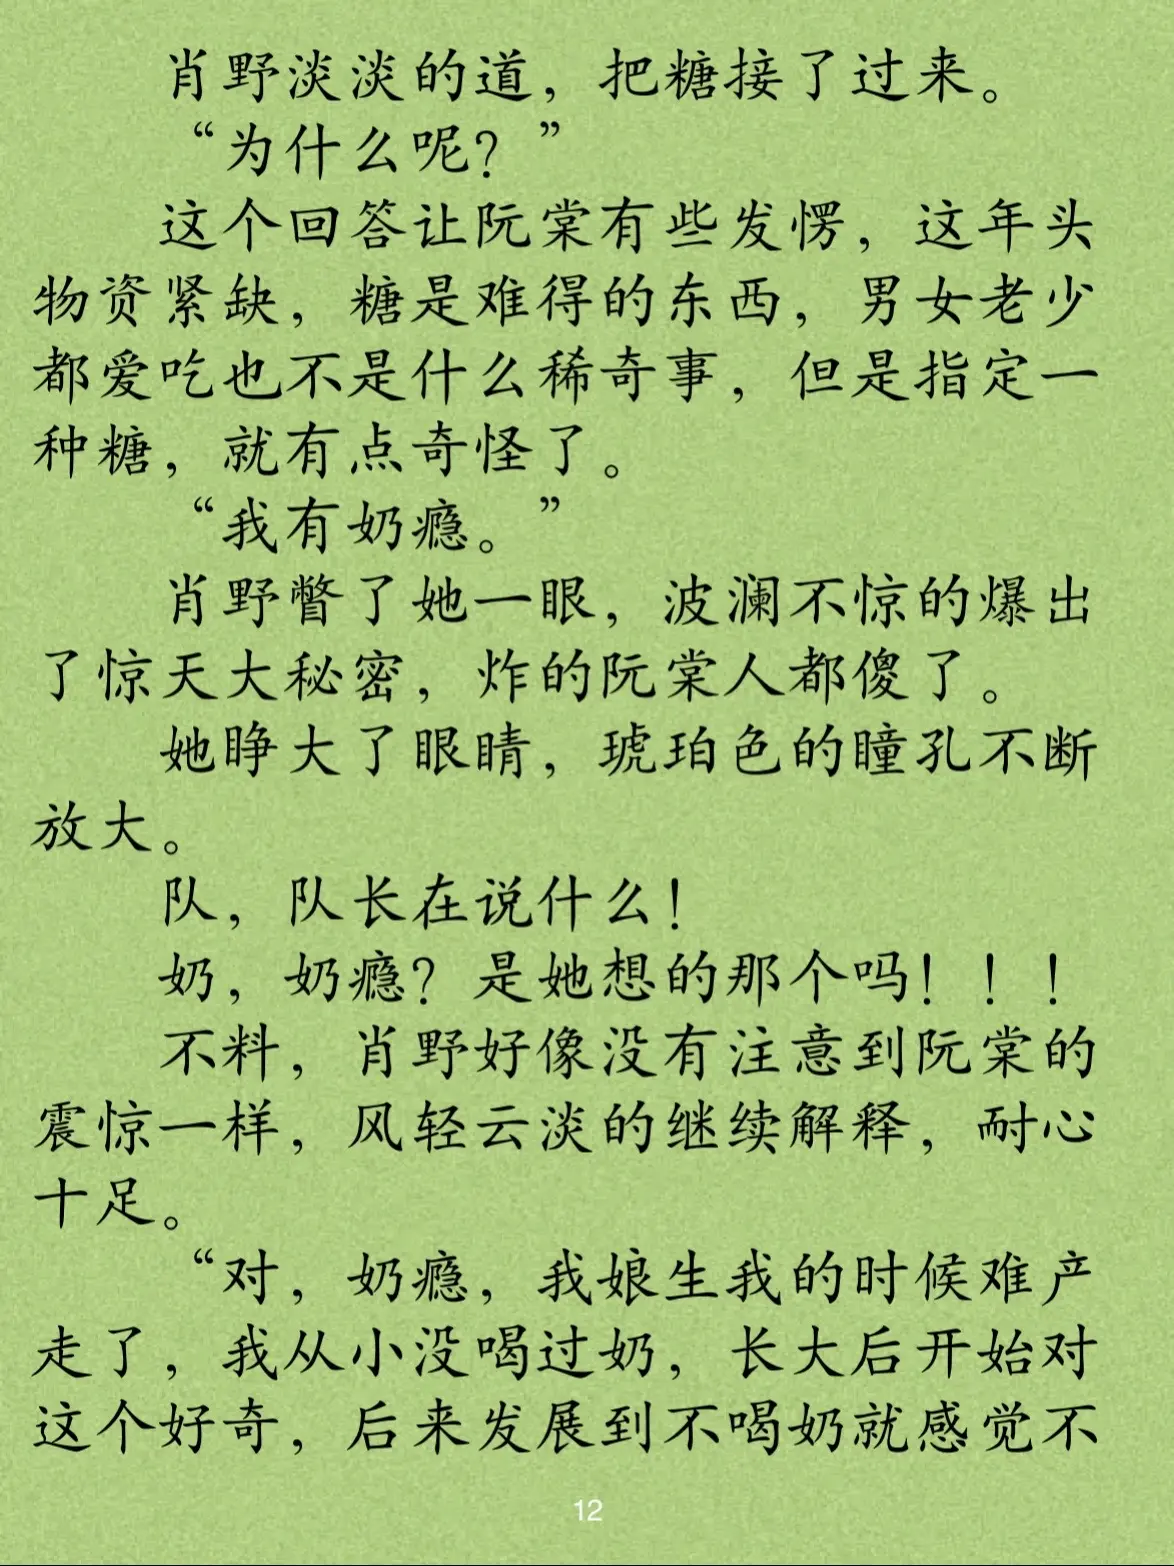 肖野淡淡的道，把糖接了过来。
“为什么呢？”
这个回答让阮棠有些发愣，这年头
物资紧缺，糖是难得的东西，男女老少
都爱吃也不是什么稀奇事，但是指定一
种糖，就有点奇怪了。
“我有奶瘾。”
肖野瞥了她一眼，波澜不惊的爆出
了惊天大秘密，炸的阮棠人都傻了。
她睁大了眼睛，琥珀色的瞳孔不断
放大。
队，队长在说什么！
奶，奶瘾？是她想的那个吗！！！
不料，肖野好像没有注意到阮棠的
震惊一样，风轻云淡的继续解释，耐心
十足。
“对，奶瘾，我娘生我的时候难产
走了，我从小没喝过奶，长大后开始对
这个好奇，后来发展到不喝奶就感觉不
12